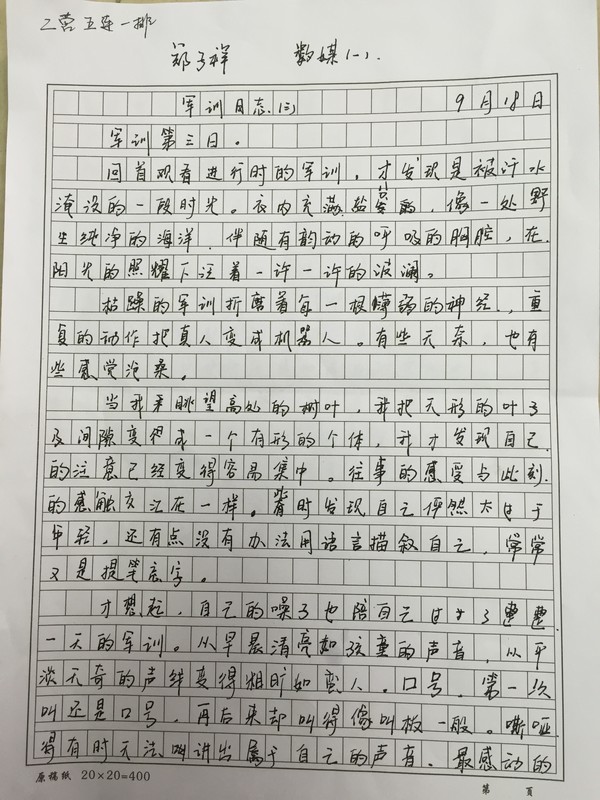 二营五连一排
郑子祥 数媒(一).
军训日志(三) 9月18日
军训第三日。
回首观看进行时的军训，才发现是被汗水
淹没的一段时光。衣内充满盐的，像一处野
生纯净的海洋，伴随有韵动的呼吸的胸腔，在
阳光的照耀下泛着一许一许的波澜。
枯躁的军训折磨着每一根薄弱的神经，重
复的动作把真人变成机器人。有些无奈，也有
些感觉沧桑。
当我来眺望高处的树叶，我把无形的叶子
及间隙变得成一个有形的个体，我才发现自己
的注意已经变得容易集中。往事的感受与此刻
的感触交汇在一样。时发现自己俨然太过于
年轻，还有点没有办法用语言描叙自己，常常
又是提笔忘字。
才想起，自己的嗓子也陪自己过去了整整
一天的军训。从早晨清亮如孩童的声音，从平
淡无奇的声线变得粗旷如蛮人。口号，第一次
叫还是口号，再后来却叫得像叫板一般。嘶哑
得有时无法叫讲出属于自己的声音。最感动的
原稿纸 20×20=400
第 页